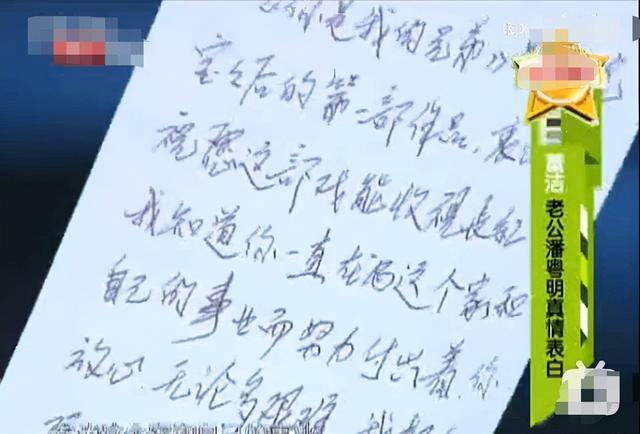 是我的兄弟
宝宝后的第一部作品，衷
祝愿这部戏能收视长红
我知道你一直在为这个家和
自己的事业而努力付出着，你
放心，无论多艰难，我
董洁 老公潘粤明真情表白